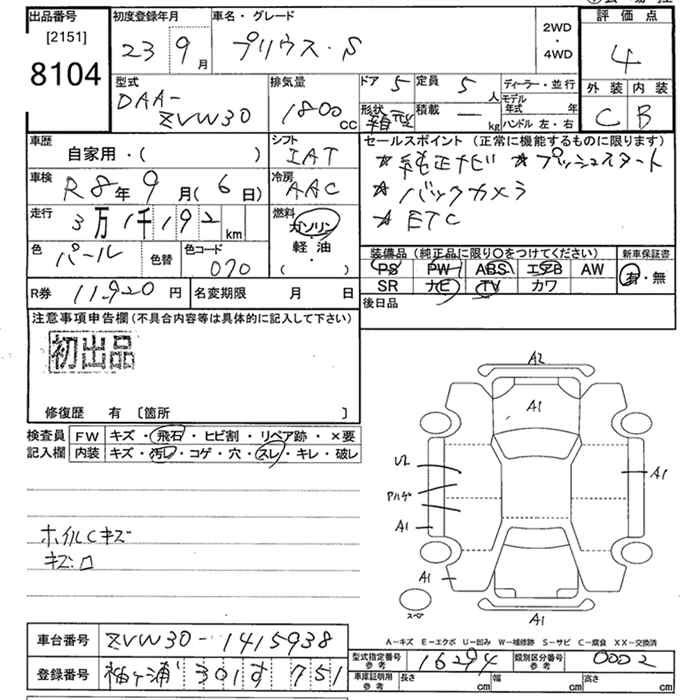 出品番号 初度登録年月 車名・グレード 2WD・4WD 評価点
[2151] 23 9月 プリウス・S 4
8104 型式 排気量 ドア 5 定員 5人 ディーラー・並行 外装 内装
DAA-ZVW30 1800cc 形状 箱型 積載 ー kg モデル年式 年 ハンドル 左・右 C B
車歴 シフト セールスポイント (正常に機能するものに限ります)
自家用・( ) IAT ☆純正ナビ ☆プッシュスタート
車検 R8年9月(6日) 冷房 AAC ☆バックカメラ
走行 3万1千192km 燃料 ガソリン 軽油 ( ・ ) ☆ETC
色 パール 色替 色コード 070 装備品 (純正品に限り○をつけてください) 新車保証書
PS PW ABS エアB AW 有・無
R券 11,920円 名変期限 月 日 SR ナビ TV カワ
後日品
注意事項申告欄(不具合内容等は具体的に記入して下さい)
初出品
修復歴 有 〔箇所 〕
検査員 FW キズ・飛石・ヒビ割・リペア跡・×要
記入欄 内装 キズ・汚レ・コゲ・穴・スレ・キレ・破レ
A2
A1
U2
Pハゲ
A1
A1
A1
スペア
A1
ホイルCキズ
キズロ
A-キズ E-エクボ U-凹み W-補修跡 S-サビ C-腐食 XX-交換済
車台番号 ZVW30-1415938
型式指定番号 参考 16294 類別区分番号 参考 0002
登録番号 袖ヶ浦 301 す 751
車庫証明用 参考 長さ cm 幅 cm 高さ cm